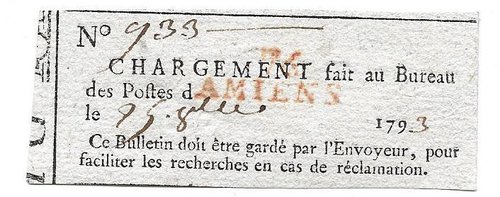 Nº 933
76
CHARGEMENT fait au Bureau
des Postes d AMIENS
le 25 1793
Ce Bulletin doit être gardé par l'Envoyeur, pour
faciliter les recherches en cas de réclamation.